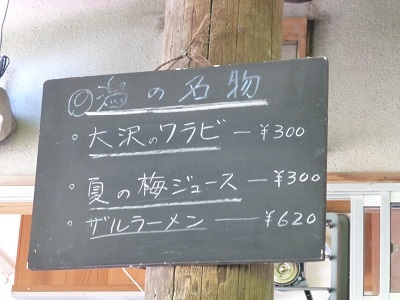 ◎潟の名物
・大沢のワラビ ー ¥300
・夏の梅ジュース ー ¥300
・ザルラーメン ー ¥620